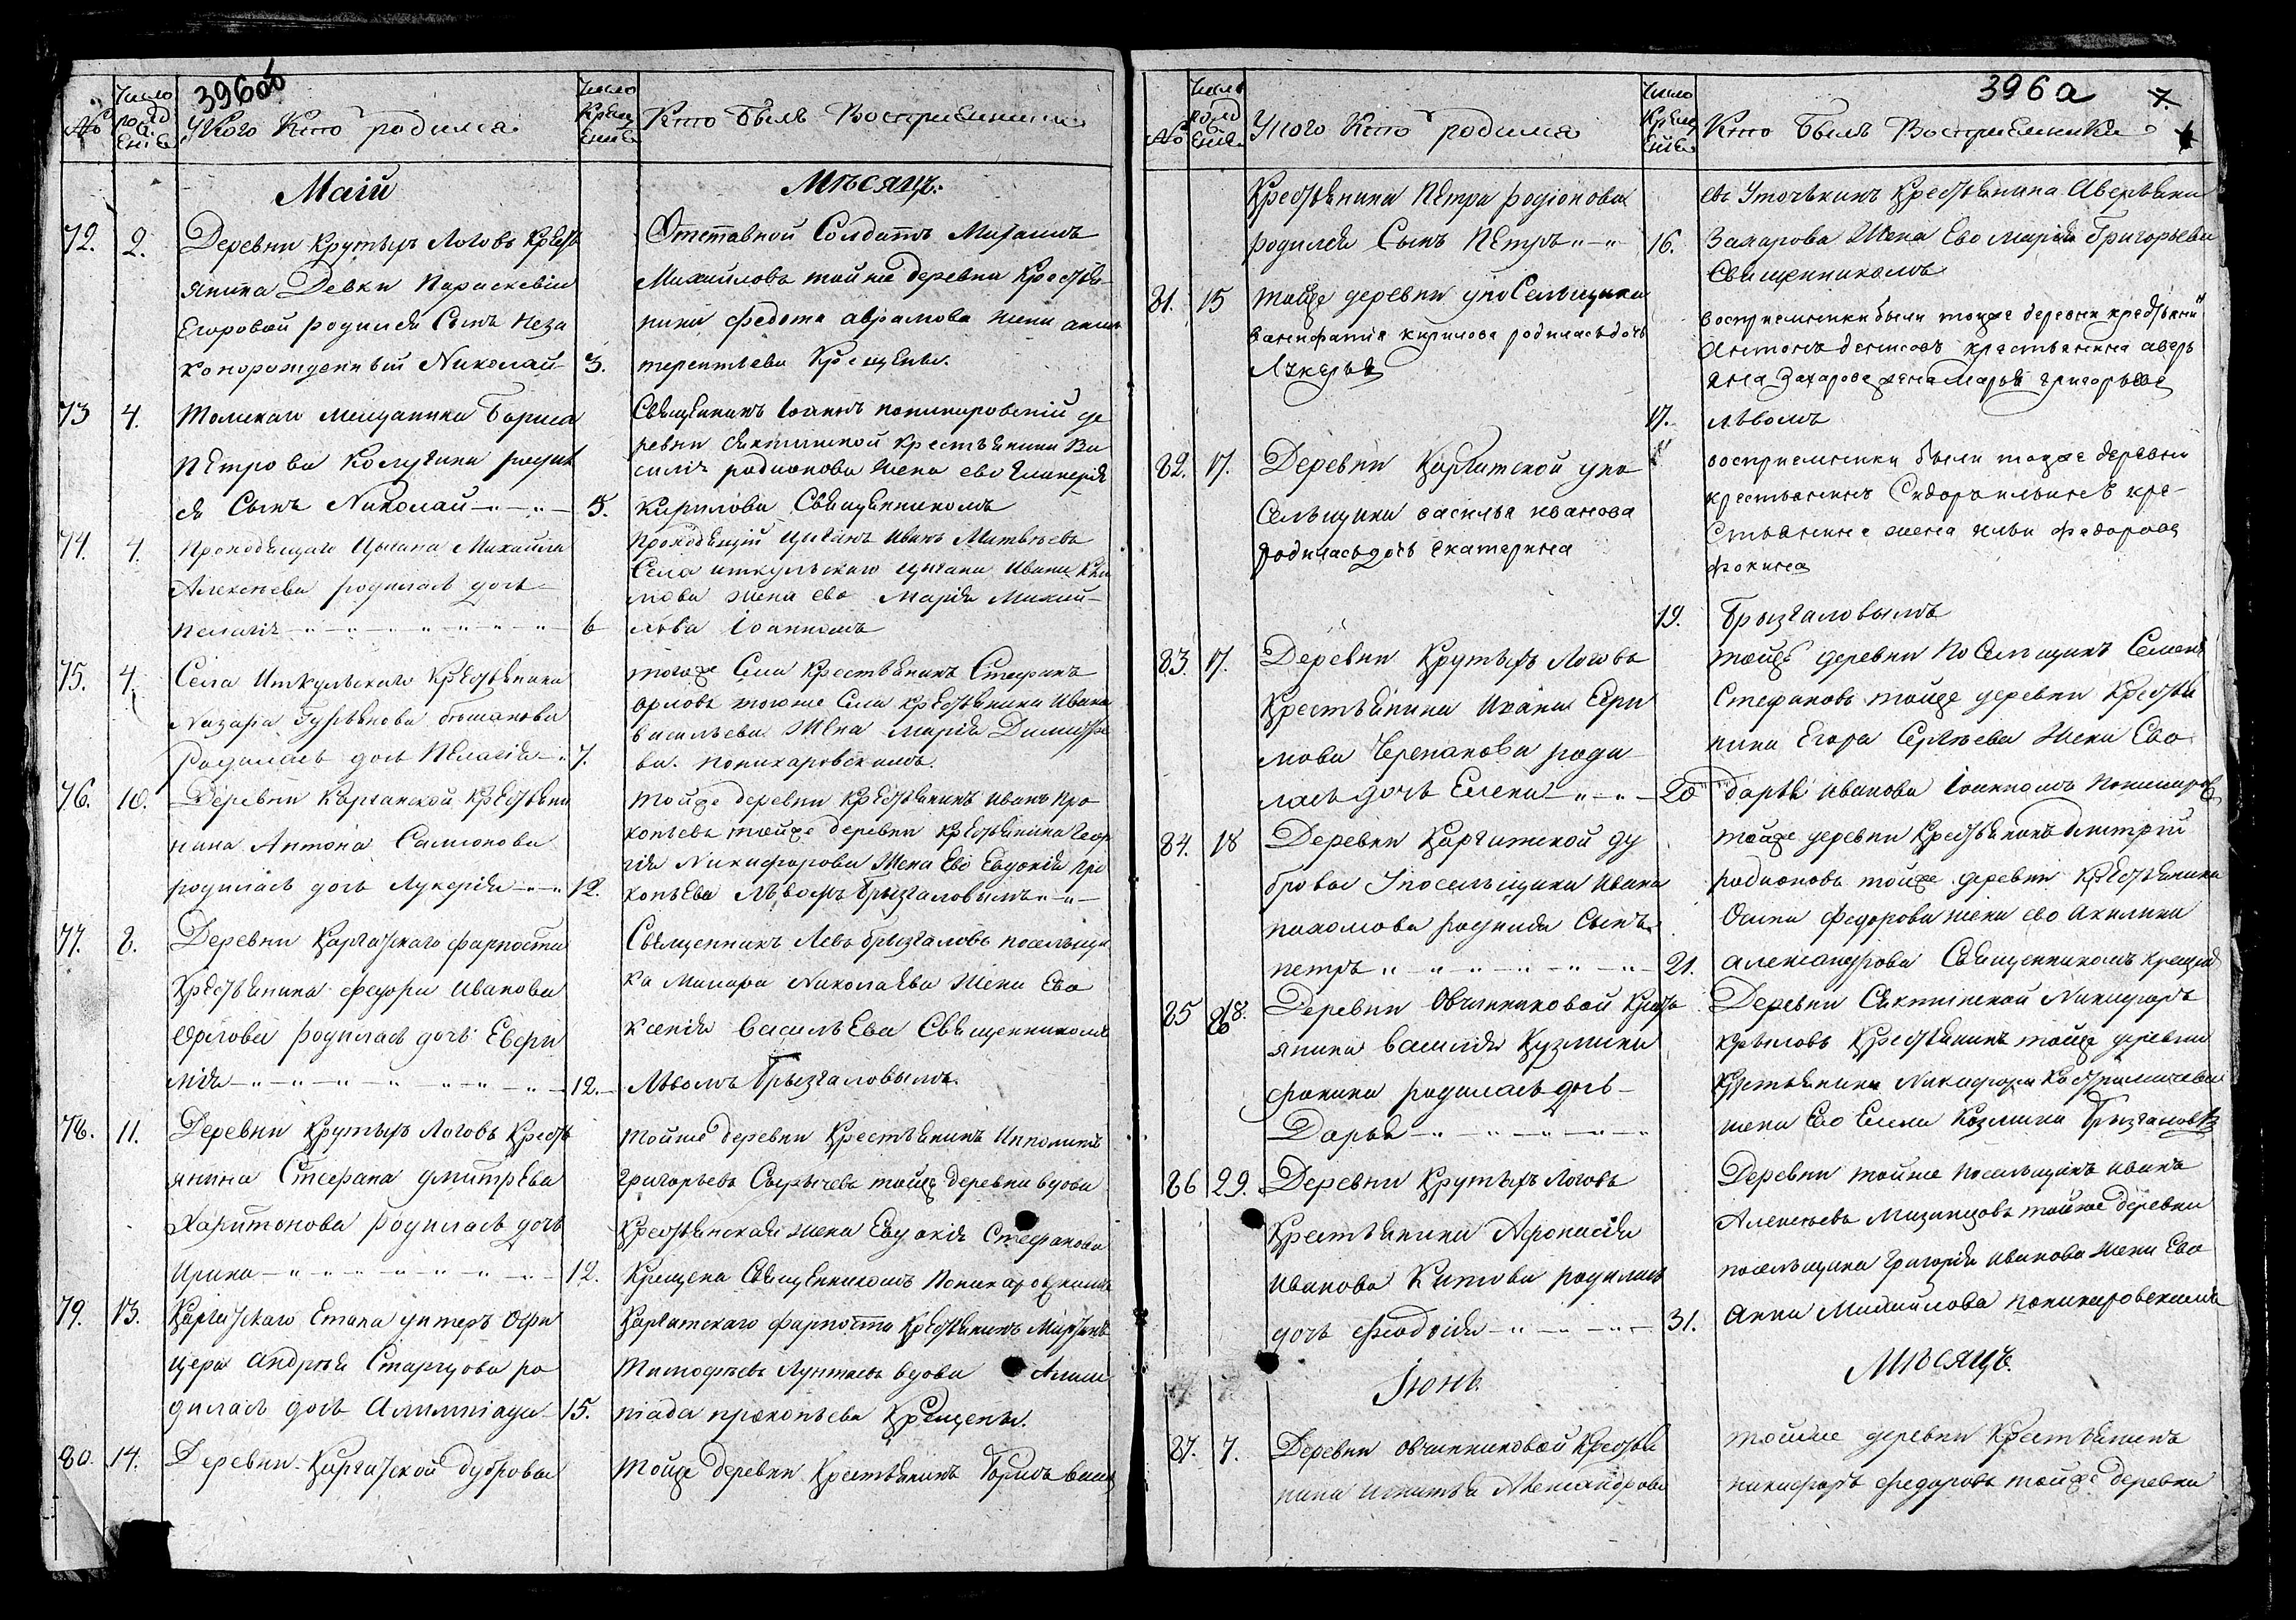 396об
№
Число рождения
У Кого Кто родился
Число Крещения
Кто Былъ Восприемники
Маий
Мѣсяцъ.
72. 2. Деревни Крутыхъ Логовъ Кресть
янина Девки Параскевіи
Егоровой родился Сынъ неза
конорожденный Николай 3.
Отставной Солдатъ
Михайловъ тойже деревни Крестья-
нина Федота аврамова жена
терентьева Крещены.
73 4. Томскаго мещанина Бориса
Петрова Колугина родил
ся Сынъ Николай 5.
Священникъ Іоаннъ поникаровскій де
ревни сектинской крестьянина Ва
силія родионова жена ево гликерія
Кирилова Священникомъ
74. 4. Проходящаго Цыгана Михайла
Алексеева родилась дочь
Пелагія 6
Проходящій цыганъ Иванъ Матвеевъ
Села иткульскаго цыгана Ивана
жена ево Марія Михай-
лова Іоанномъ
75. 4. Села Иткульскаго Крестьянина
Назара Гурьянова
Родилась дочь Пелагія 7.
тогоже Села Крестьянинъ Стефанъ
орловъ тогоже Села крестьянина Ивана
васильева Жена марія Димитріе
ва. поникаровскимъ.
76. 10. Деревни Каргатской Крестьяни
нина Антона Самсонова
родилась дочь Лукерія 12.
тойже деревни Крестьянинъ иванъ Про
копьевъ тойже деревни Крестьянина Геор
гія Никифорова Жена Ево Евдокія Про
копьева Львомъ Брызгаловымъ
77. 8. Деревни Каргатскаго фарпоста
Крестьянина федора Иванова
Орлова родилась дочь Евфи
мія 12.
Священникъ Левъ брызгаловъ посельщи
ка Макара Николаева Жена Ево
ксенія Васильева Священникомъ
Львомъ Брызгаловымъ.
78. 11. Деревни Крутыхъ Логовъ Кресть
янина Стефана дмитрева
Харитонова родилась дочь
Ирина 12.
тойже деревни Крестьянинъ Ипполитъ
Григорьевъ тойже деревни вдова
Крестьянская жена Евдокія Стефанова
Крещена Священникомъ Поникаровскимъ
79. 13. Каргатскаго Етапа унтеръ Офи
цера андрѣя Старцова ро
дилась дочь Алимпіада 15.
Каргатскаго фарпоста Крестьянинъ Мартинъ
Тимофѣевъ вдова Алим
піада прокопьева Крещены.
80. 14. Деревни Каргатской дубровы
тойже деревни Крестьянинъ Борисъ васил
396а
7.
№
Число рождения
У кого Кто родился
Число Крещения
Кто Былъ Восприемники
Крестьянина Петра родіонова
родился Сынъ Петръ 16.
евъ Уточкинъ Крестьянина Аверьяна
Захарова Жена Ево Марія Григорьева
Священникомъ
81. 15 тойже деревни у посельщика
ванифатія кирилова родилась дочь
Лукерья
17.
восприемники были тойже деревни крестьянинъ
Антонъ денисовъ крестьянина аверь
яна Захарова жена Марья Григорьева
львомъ
82. 17. Деревни Каргатской упо
сельщика василья иванова
родилась дочь екатерина
19.
восприемники были тойже деревни
крестьянинъ Сидоръ ильинъ кре-
стьянина жена ильи федорова
фокина
Брызгаловымъ
83. 17. Деревни Крутыхъ Логовъ
Крестьянина Ивана Ефи
мова Черепанова роди
лась дочь Елена 20
тойже деревни Посельщикъ Семенъ
Стефановъ тойже деревни Крестья
нина Егора Сергѣева Жена Ево
дарья иванова Іоанномъ Поникаров
84. 18 Деревни Каргатской ду
бровы У посельщика Ивана
пахомова родился Сынъ
петръ 21.
тойже деревни Крестьянинъ дмитрій
родионовъ тойже деревни Крестьянина
Осипа федорова жена ево Акилина
александрова Священникомъ крещенъ
85 18. Деревни Овчинниковой Кресть
янина Василія Кузмина
фокина родилась дочь
Дарья
Деревни Сектинской Никифоръ
Крестьянинъ тойже деревни
Крестьянина Никифора
жена Ево Елена Козмина Брызгаловъ
86 29. Деревни Крутыхъ Логовъ
Крестьянина Афонасія
Иванова Китова родилась
дочь феодосія 31.
Деревни тойже посельщикъ иванъ
Алексеевъ Мизинцовъ тойже деревни
посельщика Григорія иванова жена Ево
Анна Михайлова поникаровскимъ
Іюнь.
Мѣсяцъ.
87. 7. Деревни овчинниковой Крестья
нина игнатья Александрова
тойже деревни Крестьянинъ
никифоръ федоровъ тойже деревни